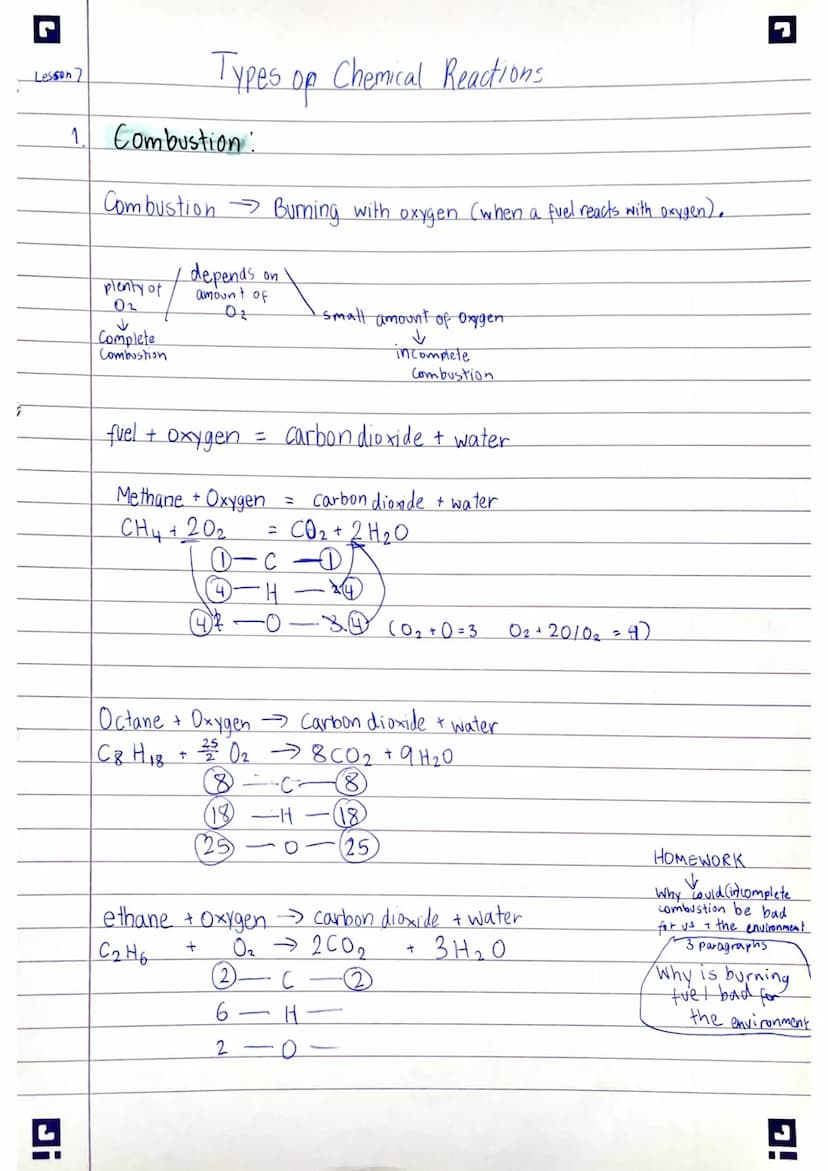 Lesson 7
Types of Chemical Reactions
1. Combustion:
Combustion → Burning with oxygen (when a fuel reacts with oxygen).
depends on
amount of
O2
plenty of
O2
↓
Complete
Combustion
small amount of Oxygen
↓
incomplete
Combustion
fuel + oxygen = carbon dioxide + water
Methane + Oxygen = carbon dioxide + water
CH4 + 2O2 = CO2 + 2H2O
1 — C — 1
4 — H — 2 4
4 2 — O — 3 4 (O2 + O = 3 O2 + 2O/O2 = 4)
Octane + Oxygen → Carbon dioxide + water
C8H18 + 25/2 O2 → 8CO2 + 9H2O
8 — C — 8
18 — H — 18
25 — O — 25
ethane + oxygen → carbon dioxide + water
C2H6 + O2 → 2CO2 + 3H2O
2 — C — 2
6 — H —
2 — O —
HOMEWORK
↓
Why could (in)complete
combustion be bad
for us + the environment
3 paragraphs
Why is burning
fuel bad for
the environment